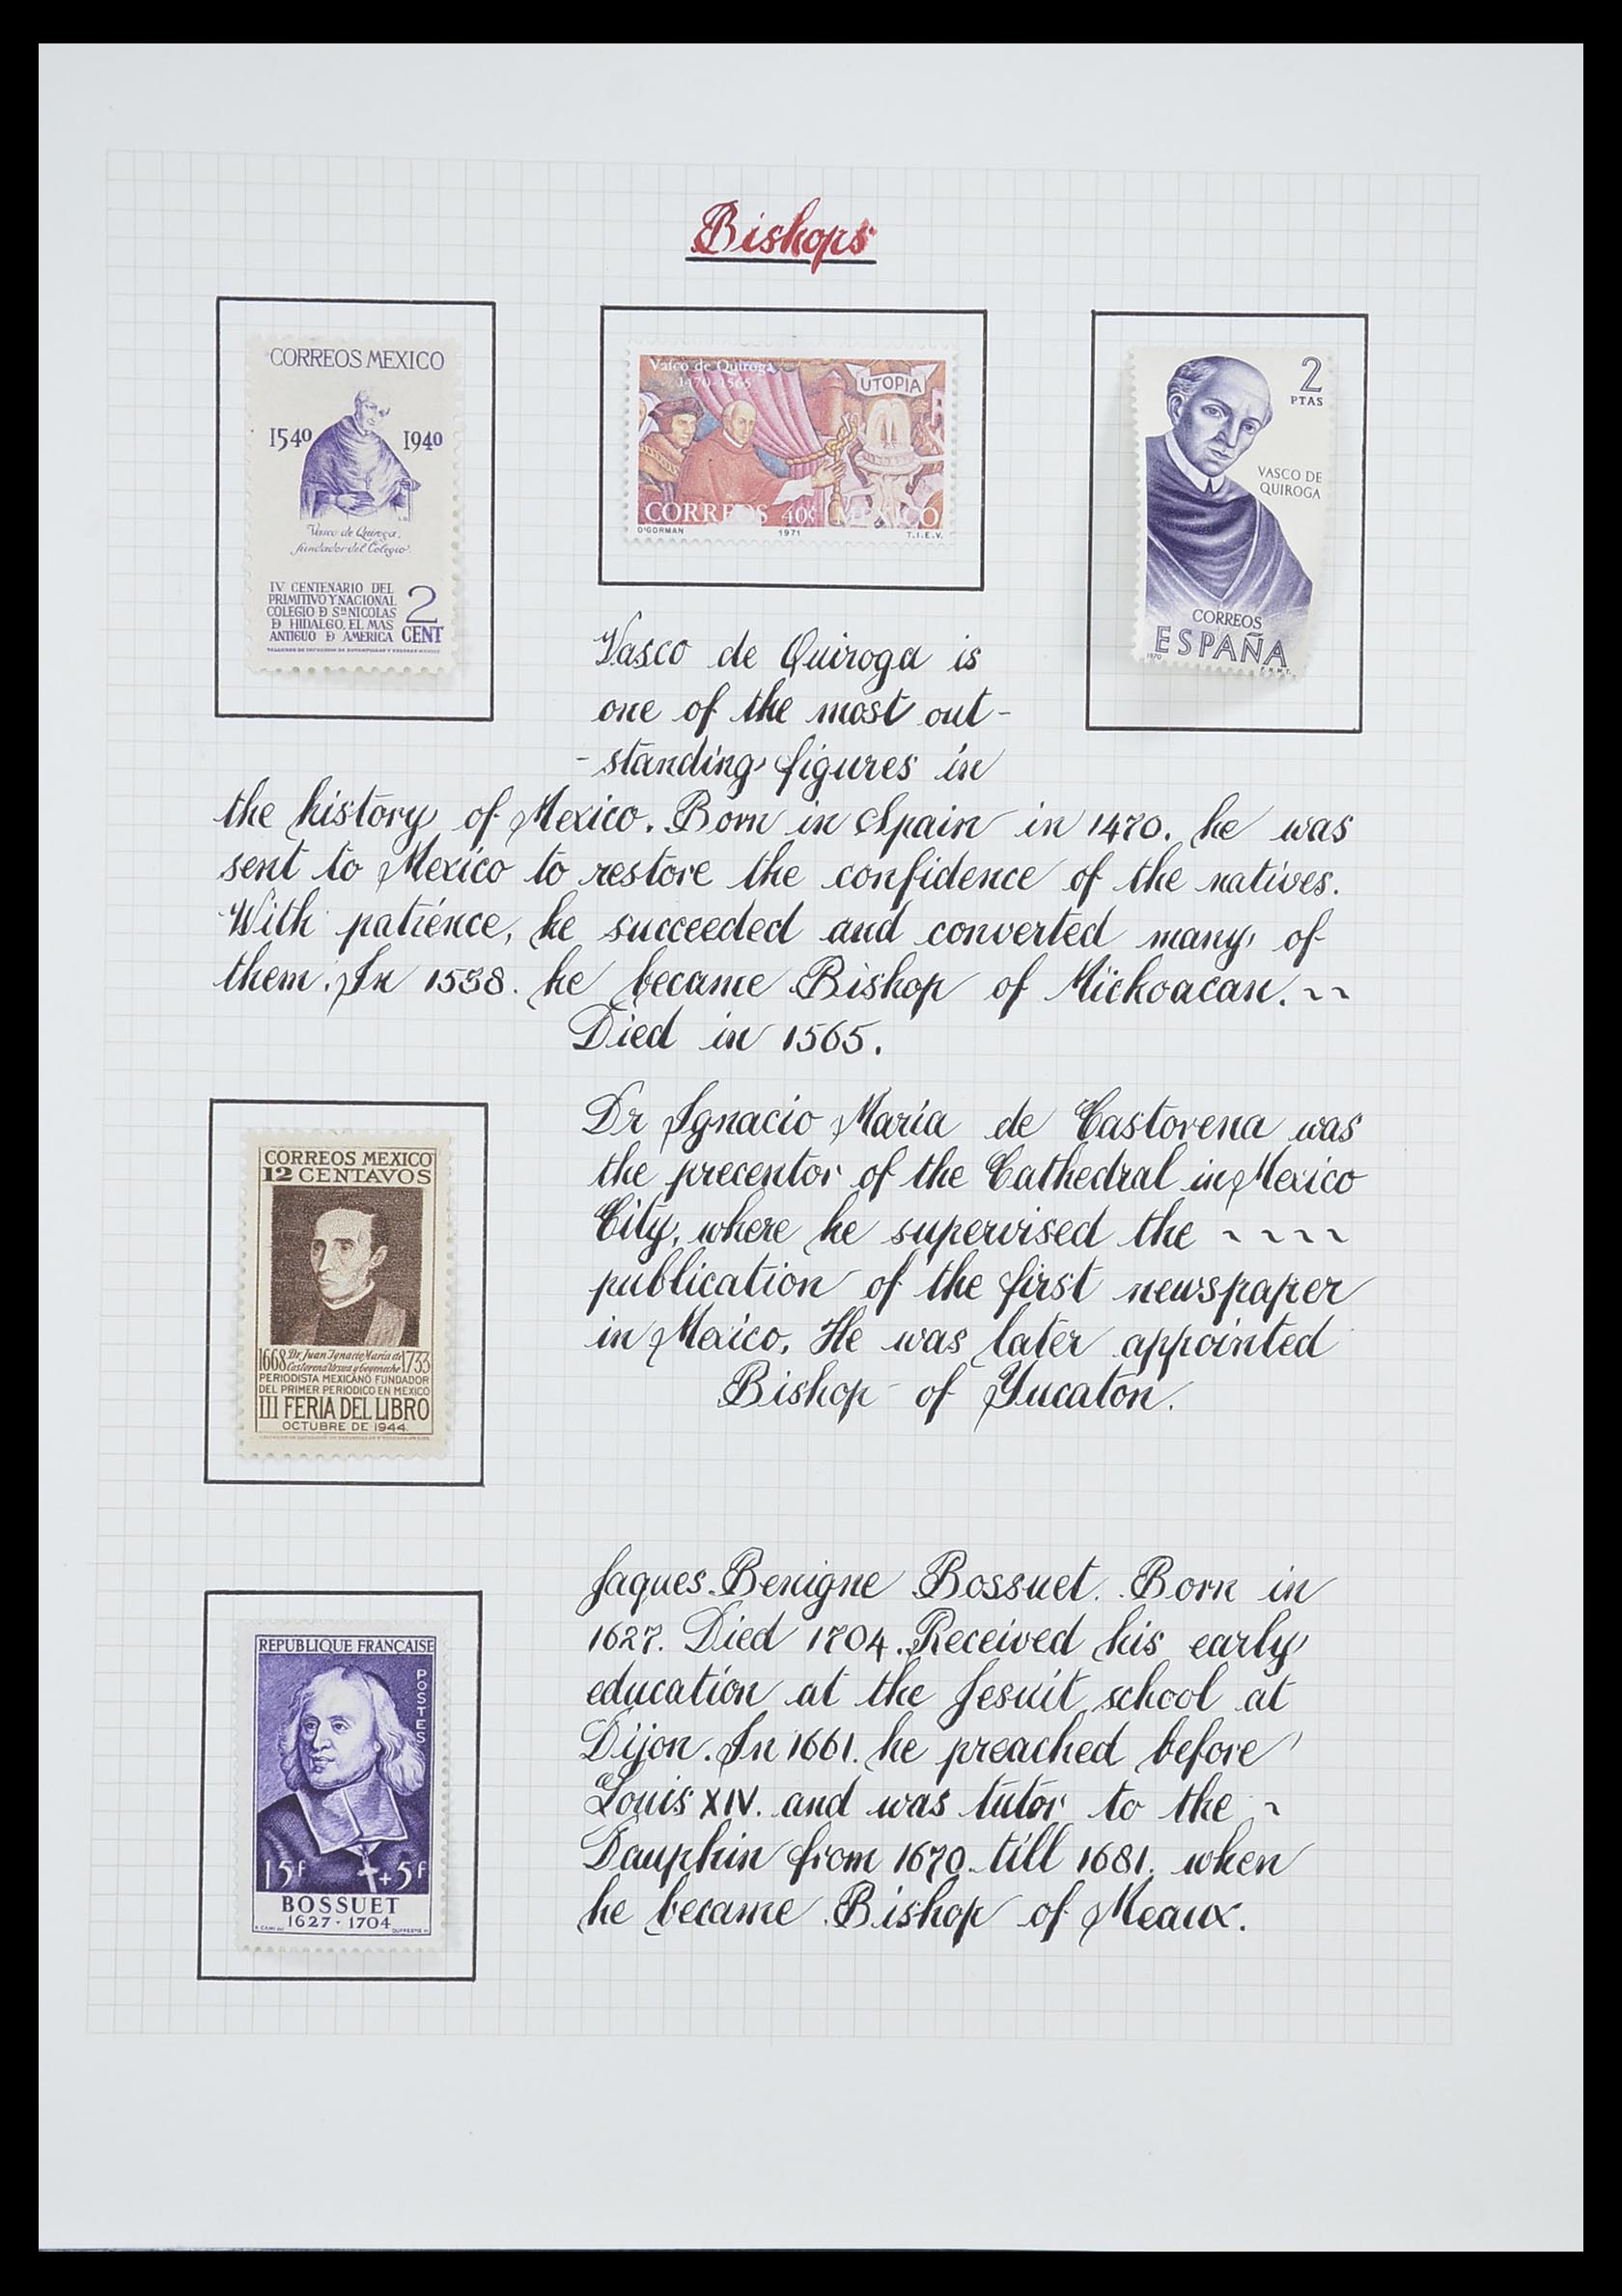 Bishops
CORREOS MEXICO
1540 1940
Vasco de Quiroga,
fundador del Colegio
IV CENTENARIO DEL
PRIMITIVO Y NACIONAL
COLEGIO D Sn NICOLAS
D HIDALGO, EL MAS
ANTIGUO D AMERICA
2
CENT
Vasco de Quiroga
1470-1565
UTOPIA
CORREOS 40c MEXICO
O'GORMAN 1971 T.I.E.V.
2
PTAS
VASCO DE
QUIROGA
CORREOS
ESPAÑA
1970 F.N.M.T.
Vasco de Quiroga is
one of the most out-
-standing figures in
the history of Mexico. Born in Spain in 1470. he was
sent to Mexico to restore the confidence of the natives.
With patience, he succeeded and converted many of
them. In 1538. he became Bishop of Michoacan. ~~
Died in 1565.
CORREOS MEXICO
12 CENTAVOS
1668 Dr. Juan Ignacio María de 1733
Castorena Ursua y Goyeneche
PERIODISTA MEXICANO FUNDADOR
DEL PRIMER PERIODICO EN MEXICO
III FERIA DEL LIBRO
OCTUBRE DE 1944.
Dr Ignacio Maria de Castorena was
the precentor of the Cathedral in Mexico
City, where he supervised the ~ ~ ~ ~
publication of the first newspaper
in Mexico. He was later appointed
Bishop of Yucaton.
REPUBLIQUE FRANÇAISE
POSTES
15f +5f
BOSSUET
1627 - 1704
Jaques Benigne Bossuet. Born in
1627. Died 1704. Received his early
education at the Jesuit school at
Dijon. In 1661. he preached before
Louis XIV. and was tutor to the ~
Dauphin from 1670. till 1681. when
he became Bishop of Meaux.